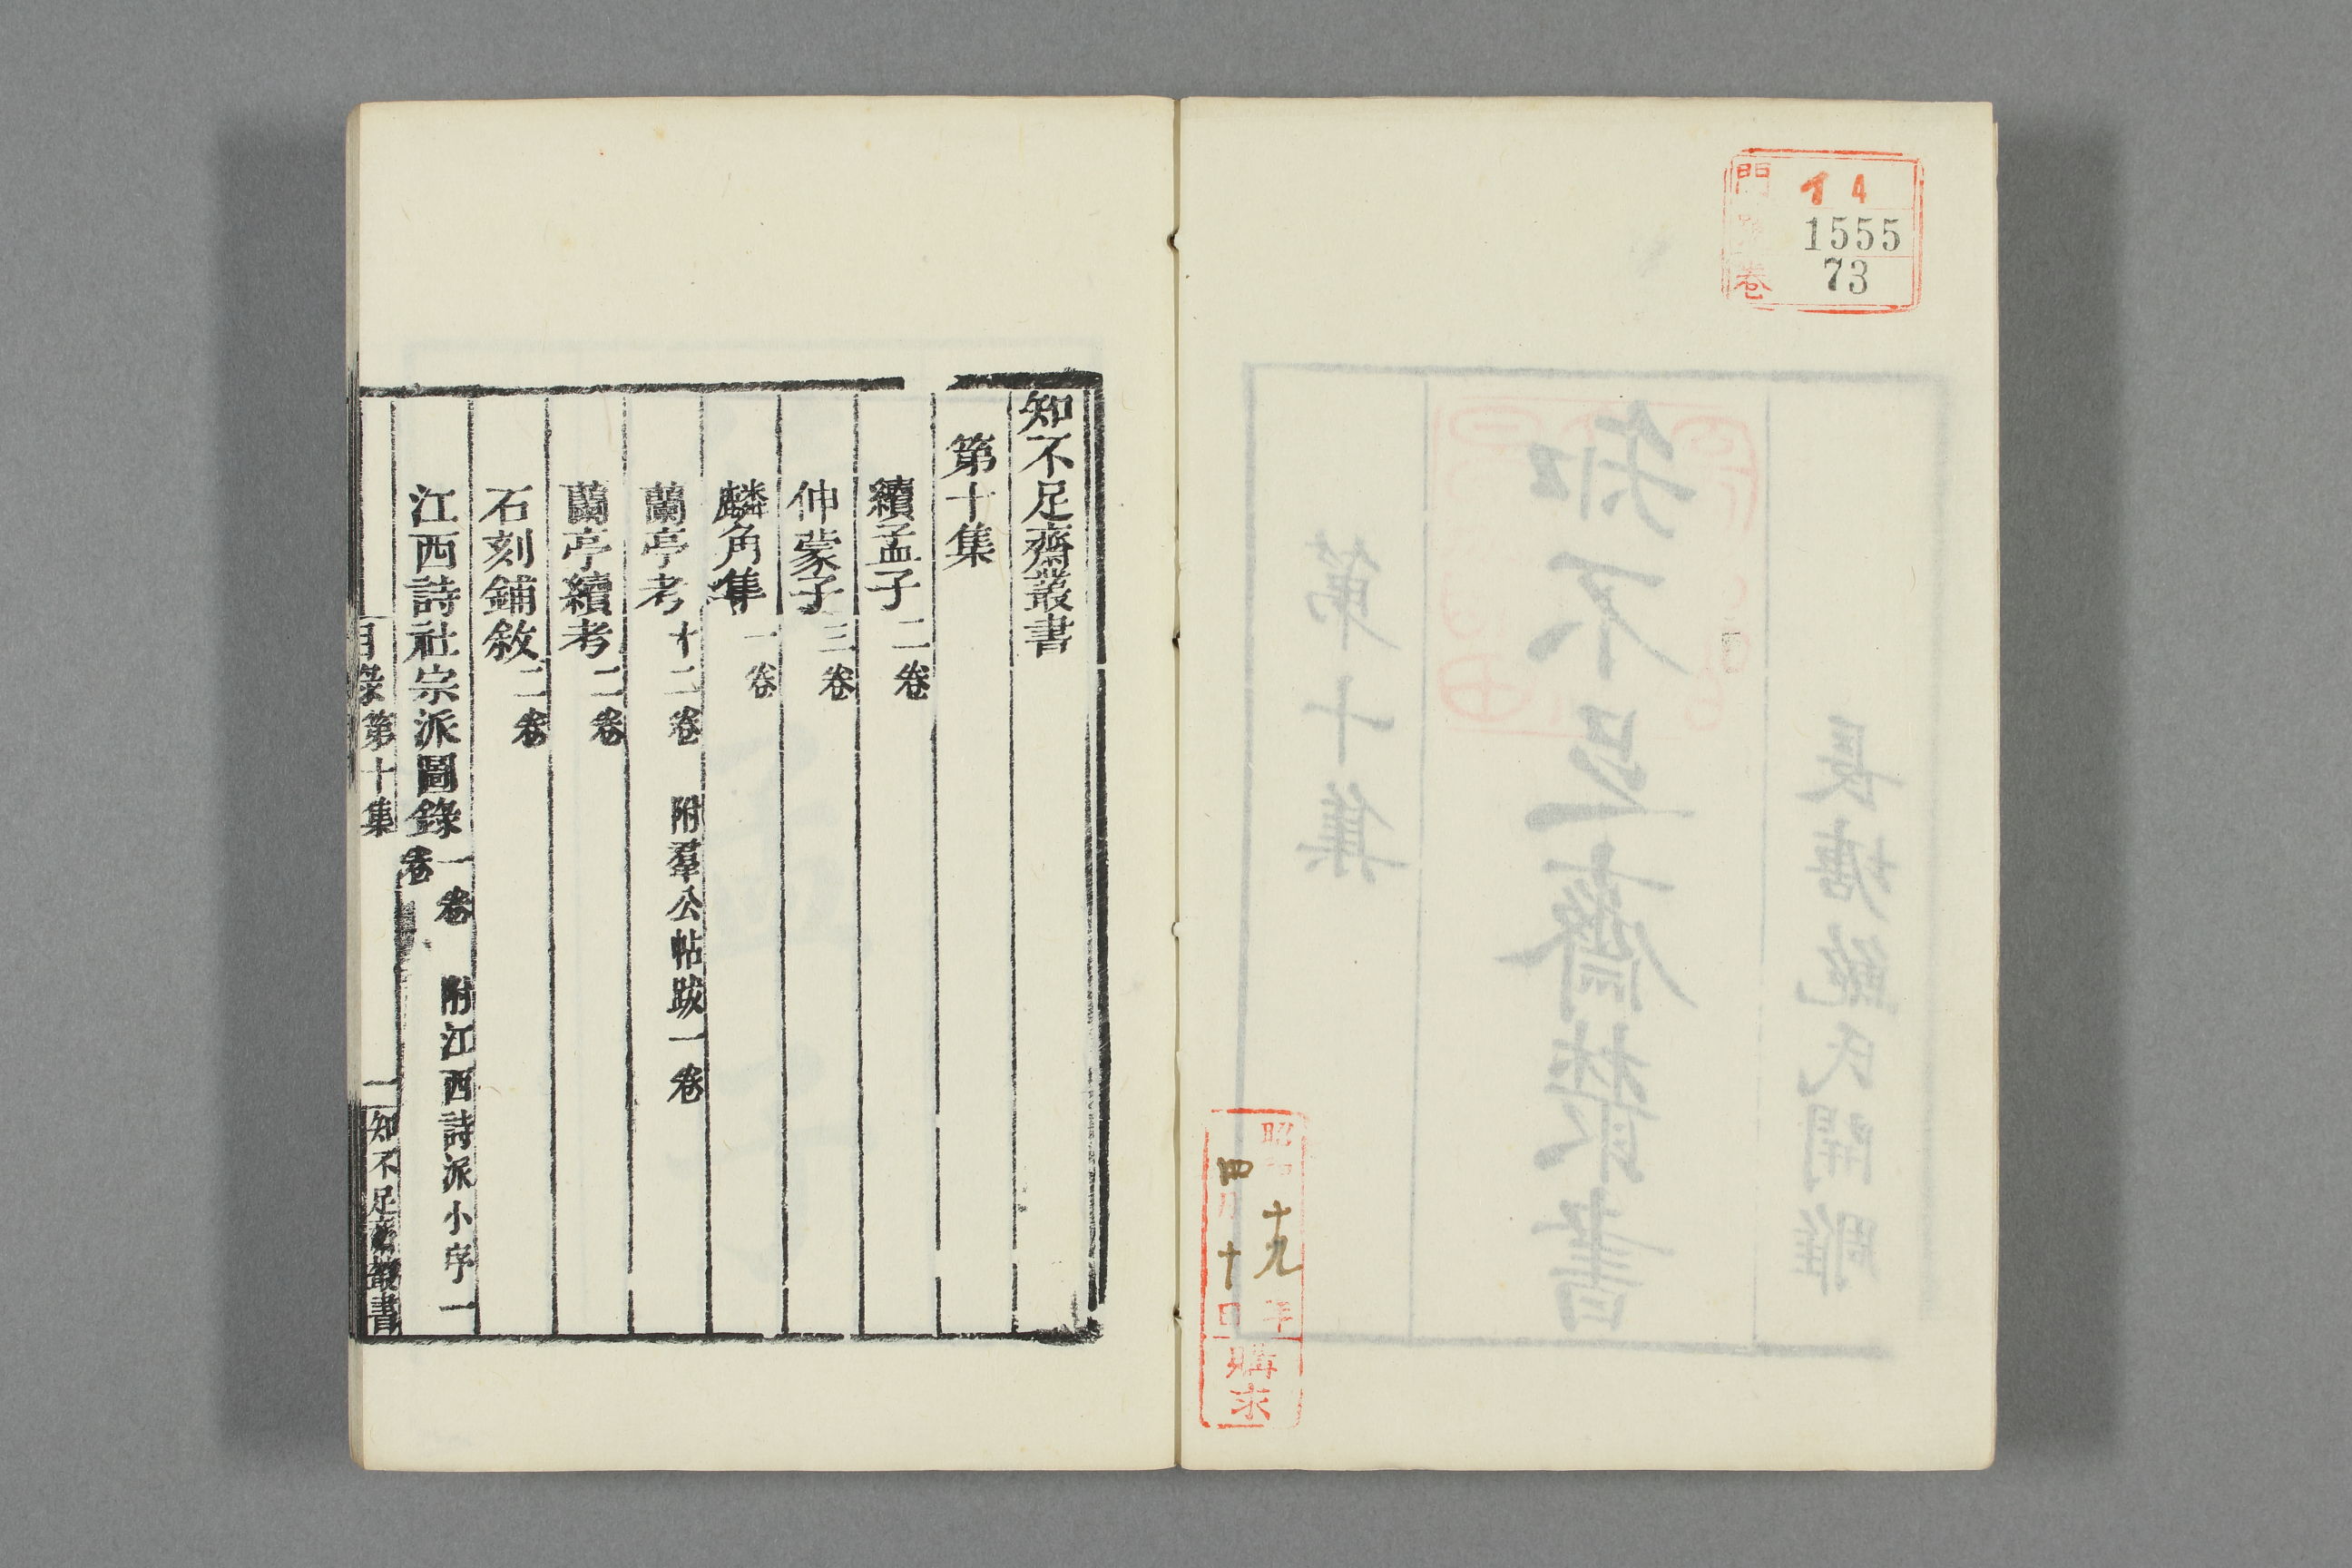 門 イ4
1555
卷 73
昭和十九年
四月十日
購求
長塘鮑氏開雕
知不足齋叢書
第十集
知不足齋叢書
第十集
續孟子二卷
仲蒙子三卷
麟角集一卷
蘭亭考十二卷 附羣公帖跋一卷
蘭亭續考二卷
石刻鋪敘二卷
江西詩社宗派圖錄一卷 附江西詩派小序一
卷
目錄第十集 一 知不足齋叢書